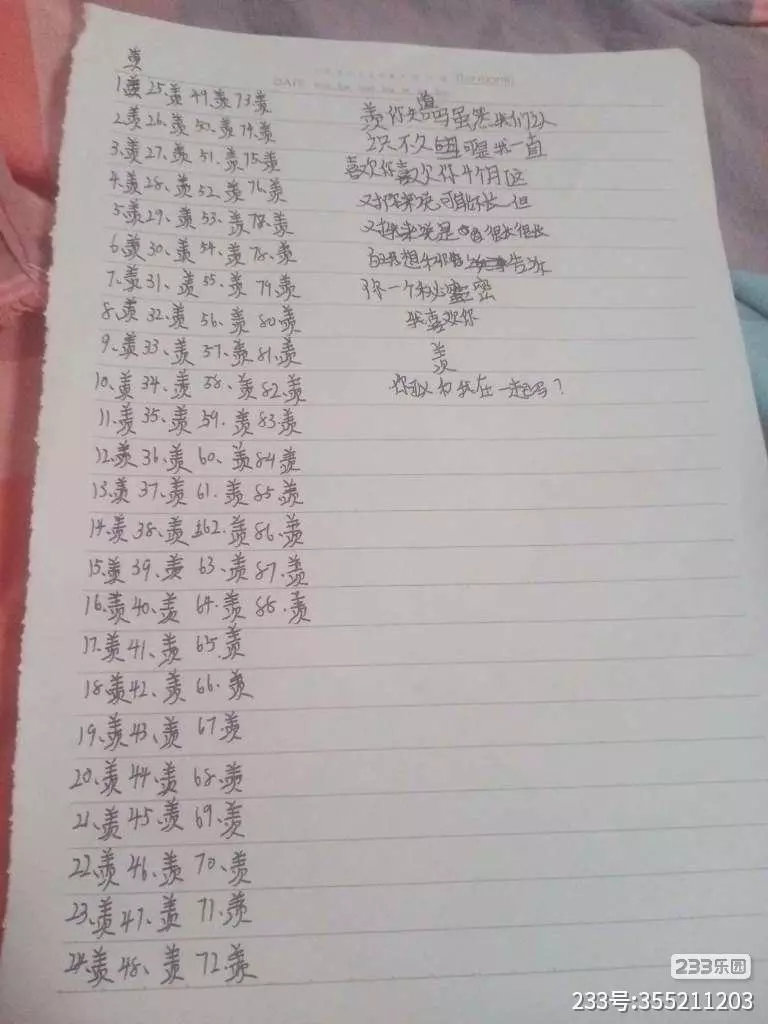 羡
1.羡 25.羡 49.羡 73.羡
2.羡 26、羡 50、羡 74.羡
3、羡 27、羡 51、羡 75.羡
4.羡 28、羡 52、羡 76.羡
5.羡 29、羡 53、羡 78.羡
6.羡 30、羡 54、羡 78、羡
7、羡 31、羡 55、羡 79.羡
8、羡 32、羡 56、羡 80.羡
9、羡 33、羡 57、羡 81.羡
10、羡 34、羡 58、羡 82.羡
11.羡 35、羡 59、羡 83.羡
12、羡 36、羡 60、羡 84.羡
13、羡 37、羡 61.羡 85.羡
14.羡 38、羡 162.羡 86.羡
15、羡 39、羡 63、羡 87.羡
16、羡 40、羡 64.羡 88.羡
17、羡 41、羡 65.羡
18.羡 42、羡 66.羡
19、羡 43、羡 67.羡
20、羡 44、羡 68.羡
21、羡 45、羡 69、羡
22、羡 46、羡 70、羡
23、羡 47、羡 71.羡
24.羡 48、羡 72.羡
羡你知道吗虽然我们认
识不久但是可是我一直
喜欢你喜欢你4个月这
对你来说可能不长但
对我来说是 很长很长
我想 告诉
你一个秘密密
我喜欢你
羡
你可以和我在一起吗?
233乐园
233号:355211203